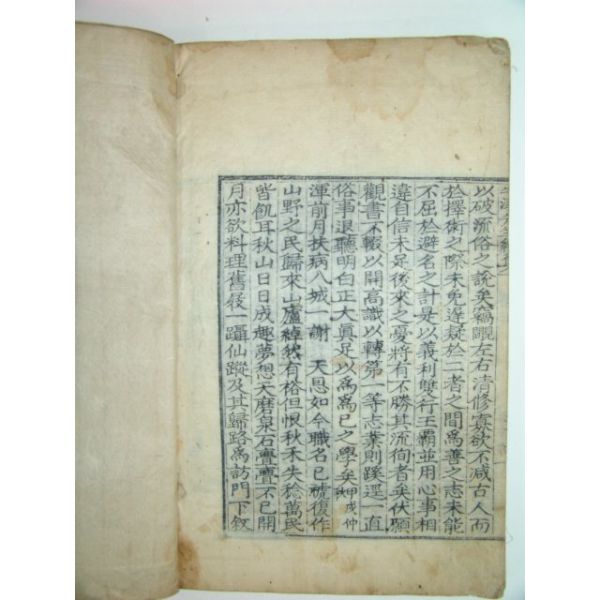 以破流俗之說矣竊覸左右清修寡欲不减古人而
於擇術之際未免遅疑於二者之間爲善之志未能
不屈於避名之計是以義利雙行王霸並用心事相
違自信未足後來之憂將有不勝其流徇者矣伏願
觀書不輟以開高識以轉第一等志業則蹊逕一直
俗事退聽明白正大眞足以爲爲己之學矣如何 甲戌仲
渾前月扶病入城一謝 天恩如今職名已褫復作
山野之民歸來山廬綽然有裕但恨秋禾失稔萬民
皆飢耳秋山日日成趣夢想天磨泉石亹亹不已開
月亦欲料理舊後一躡仙蹤及其歸路爲訪門下敘